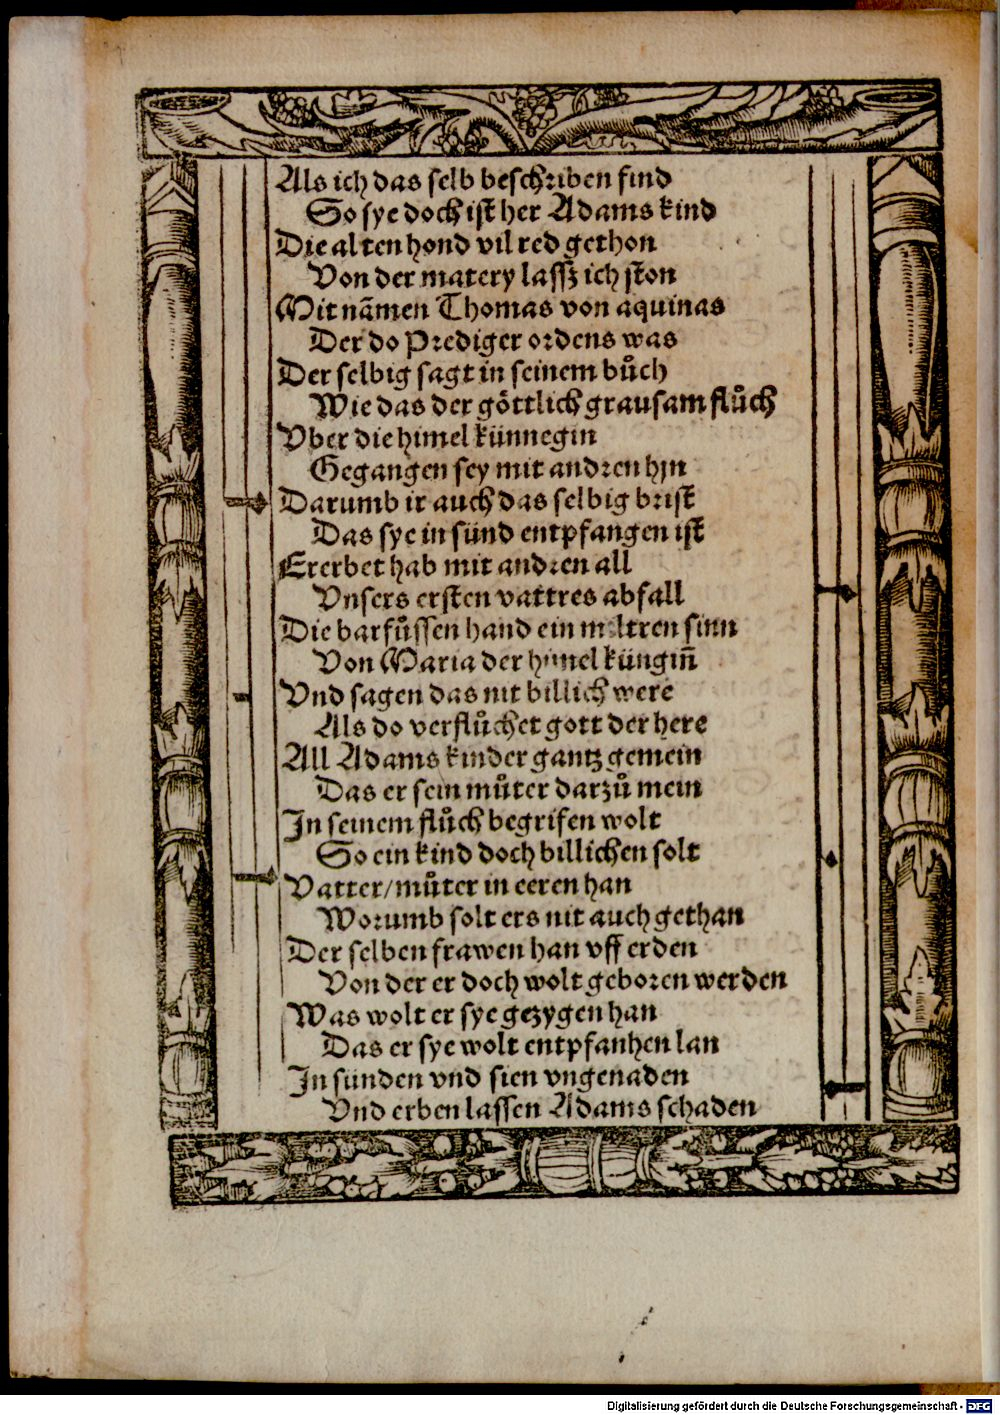 Als ich das selb beschriben find
So sye doch ist her Adams kind
Die alten hond vil red gethon
Von der matery lassz ich ston
Mit nãmen Thomas von aquinas
Der do Prediger ordens was
Der selbig sagt in seinem bůch
Wie das der göttlich grausam flůch
Vber die himel künnegin
Gegangen sey mit andren hyn
Darumb ir auch das selbig brist
Das sye in sünd entpfangen ist
Ererbet hab mit andren all
Vnsers ersten vattres abfall
Die barfůssen hand ein miltren sinn
Von Maria der himel küngiñ
Vnd sagen das nit billich were
Als do verflůchet gott der here
All Adams kinder gantz gemein
Das er sein můter darzů mein
In seinem flůch begrifen wolt
So ein kind doch billichen solt
Vatter/můter in eeren han
Worumb solt ers nit auch gethan
Der selben frawen han vff erden
Von der er doch wolt geboren werden
Was wolt er sye gezygen han
Das er sye wolt entpfanhen lan
In sünden vnd sien vngenaden
Vnd erben lassen Adams schaden
Digitalisierung gefördert durch die Deutsche Forschungsgemeinschaft - DFG